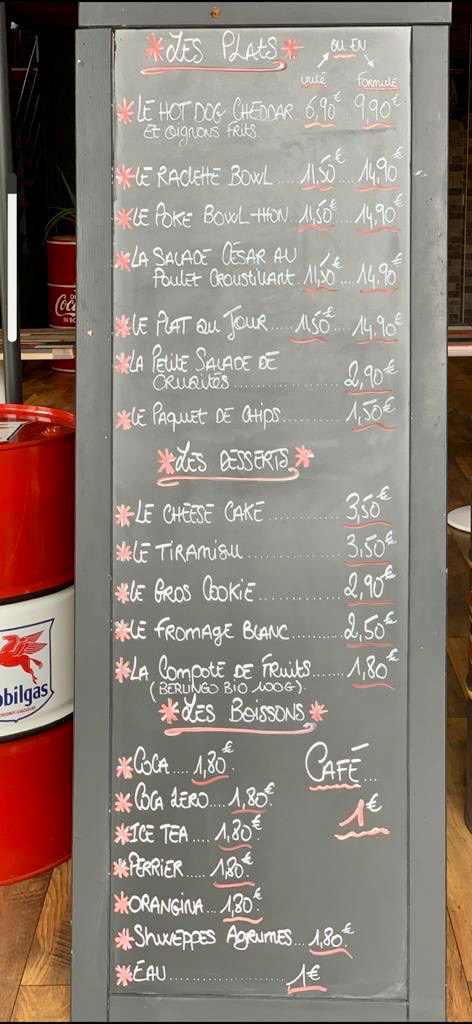 *LES PLATS*
OU EN
unité Formule
*LE HOT DOG CHEDDAR.. 6,90€... 9,90€
ET oignons frits
*LE RACLETTE BOWL.... 11,50€.... 14,90€
*LE POKE BOWL-THON. 11,50€... 14,90€
*LA SALADE CÉSAR AU
Poulet Croustillant. 11,50€.... 14,90€
*LE PLAT DU JOUR.... 11,50€... 14,90€
*LA Petite SALADE DE
CRUDITÉS............... 2,90€
*LE PAQUET DE CHIPS......... 1,50€
*LES DESSERTS*
*LE CHEESE CAKE........... 3,50€
*LE TIRAMISU............... 3,50€
*LE GROS COOKIE............ 2,90€
*LE FROMAGE BLANC........ 2,50€
*LA COMPOTE DE FRUITS...... 1,80€
(BERLINGO BIO 100G).
*LES BOISSONS*
*COCA.... 1,80€. CAFÉ...
*COCA ZERO... 1,80€. 1€
*ICE TEA .... 1,80€.
*PERRIER..... 1,80€.
*ORANGINA... 1,80€.
*SHWEPPES AGRUMES... 1,80€.
*EAU.................. 1€
Coca
IN BO
obilgas